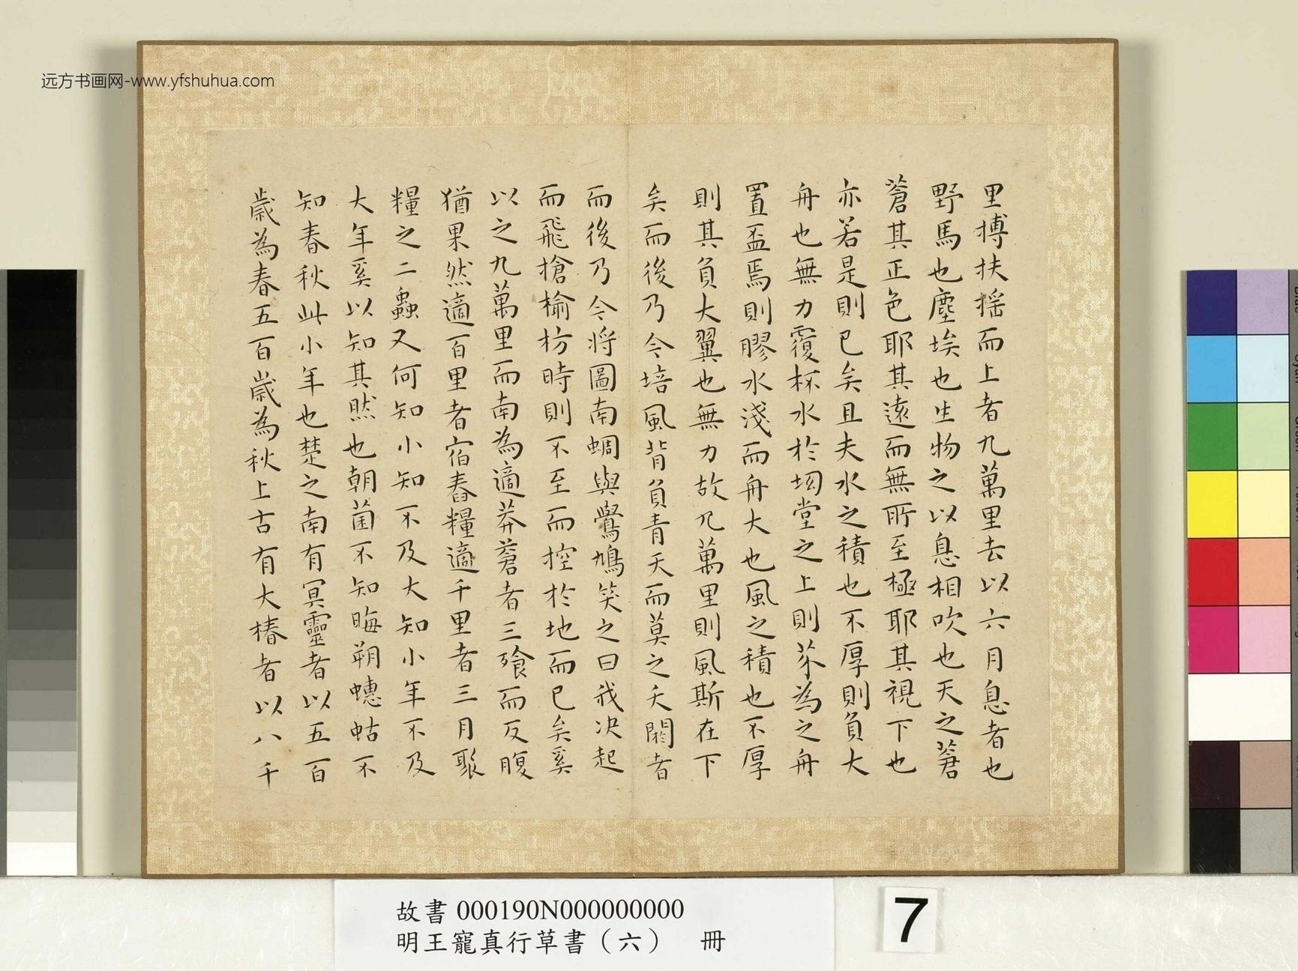 远方书画网-www.yfshuhua.com
里摶扶摇而上者九萬里去以六月息者也
野馬也塵埃也生物之以息相吹也天之蒼
蒼其正色耶其遠而無所至極耶其視下也
亦若是則已矣且夫水之積也不厚則負大
舟也無力覆杯水於坳堂之上則芥為之舟
置盃焉則膠水淺而舟大也風之積也不厚
則其負大翼也無力故九萬里則風斯在下
矣而後乃今培風背負青天而莫之夭閼者
而後乃今将圖南蜩與鷽鳩笑之曰我决起
而飛搶榆枋時則不至而控於地而已矣奚
以之九萬里而南為適莽蒼者三飱而反腹
猶果然適百里者宿舂糧適千里者三月聚
糧之二蟲又何知小知不及大知小年不及
大年奚以知其然也朝菌不知晦朔蟪蛄不
知春秋此小年也楚之南有冥靈者以五百
歳為春五百歳為秋上古有大椿者以八千
故書 000190N000000000
明王寵真行草書（六） 冊
7